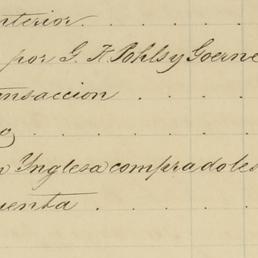 nterior
por G. H. Pohls y Goerne
nsaccion
o
n Inglesa compradoles
uenta